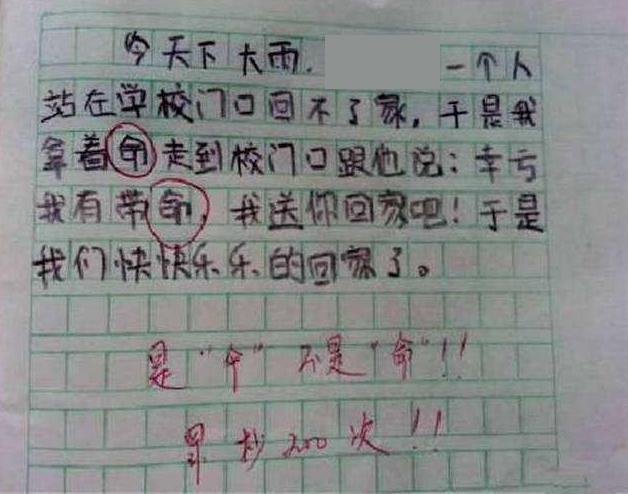 今天下大雨. 一个人
站在学校门口回不了家, 于是我
拿着命走到校门口跟他说: 幸亏
我有带命, 我送你回家吧! 于是
我们快快乐乐的回家了。
是“伞”不是“命”!!
罚抄200次!!